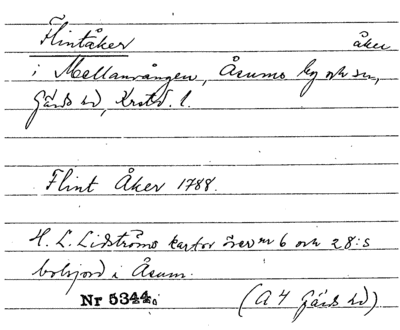 Flintåker åker
i Mellanvången, Åsums by och sn,
Gärds hd, Krstd. l.
Flint Åker 1788.
H. L. Lidströms kartor över nr 6 och 28:s
bolsjord i Åsum.
Nr 5344. (A 4 Gärds hd)